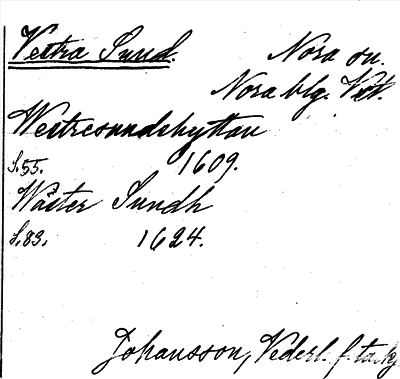 Vestra Sund.
Nora sn.
Nora blg. Vst.
Westresundshyttan
S. 55. 1609.
Wäster Sundh
S. 83. 1624.
Johansson, Vederl. f.